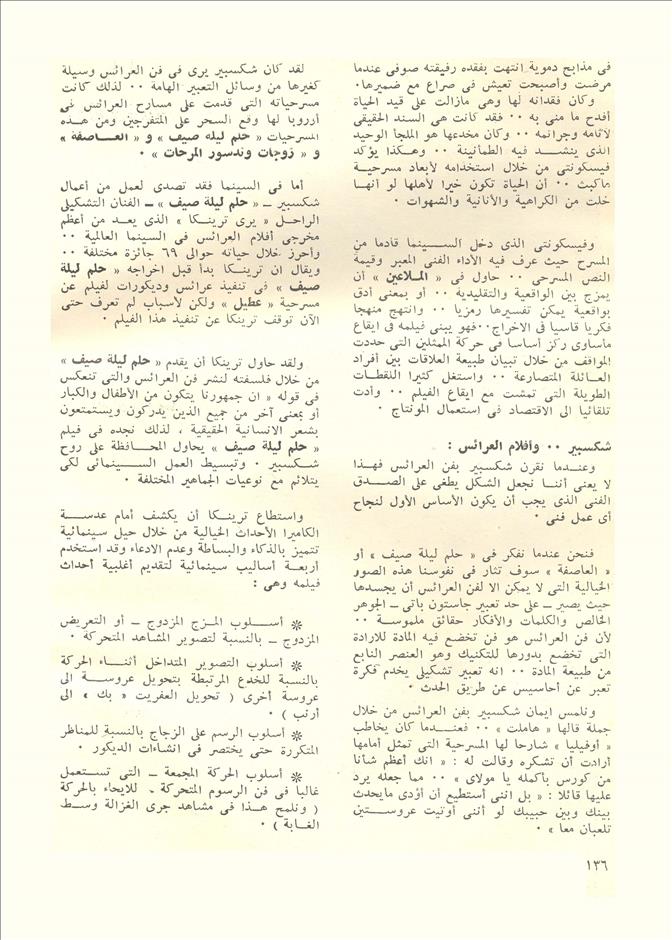 فى مذابح دموية انتهت بفقده رفيقته صوفى عندما
مرضت وأصبحت تعيش فى صراع مع ضميرها·
وكان فقدانه لها وهى مازالت على قيد الحياة
أفدح ما منى به ·· فقد كانت هى السند الحقيقى
لآثامه وجرائمه ·· وكان مخدعها هو الملجأ الوحيد
الذى ينشد فيه الطمأنينة ·· وهكذا يؤكد
فيسكونتى من خلال استخدامه لأبعاد مسرحية
ماكبث ·· أن الحياة تكون خيرا لأهلها لو أنها
خلت من الكراهية والأنانية والشهوات ·
وفيسكونتى الذى دخل السينما قادما من
المسرح حيث عرف فيه الأداء الفنى المعبر وقيمة
النص المسرحى ·· حاول فى « الملاعين » أن
يمزج بين الواقعية والتقليدية ·· أو بمعنى أدق
بواقعية يمكن تفسيرها رمزيا ·· وانتهج منهجا
فكريا قاسيا فى الاخراج··فهو يبنى فيلمه فى ايقاع
مأساوى ركز أساسا فى حركة الممثلين التى حددت
المواقف من خلال تبيان طبيعة العلاقات بين أفراد
العائلة المتصارعة ·· واستغل كثيرا اللقطات
الطويلة التى تمشت مع ايقاع الفيلم ·· وأدت
تلقائيا الى الاقتصاد فى استعمال المونتاج ·
شكسبير ·· وأفلام العرائس :
وعندما نقرن شكسبير بفن العرائس فهذا
لا يعنى أننا نجعل الشكل يطغى على الصدق
الفنى الذى يجب أن يكون الأساس الأول لنجاح
أى عمل فنى ·
فنحن عندما نفكر فى « حلم ليلة صيف » أو
« العاصفة » سوف تثار فى نفوسنا هذه الصور
الخيالية التى لا يمكن الا لفن العرائس أن يجسدها
حيث يصير ـ على حد تعبير جاستون باتى ـ الجوهر
الخالص والكلمات والأفكار حقائق ملموسة ··
لأن فن العرائس هو فن تخضع فيه المادة للارادة
التى تخضع بدورها للتكنيك وهو العنصر النابع
من طبيعة المادة ·· انه تعبير تشكيلى يخدم فكرة
تعبر عن أحاسيس عن طريق الحدث ·
ونلمس ايمان شكسبير بفن العرائس من خلال
جملة قالها « هاملت » ·· فعندما كان يخاطب
« أوفيليا » شارحا لها المسرحية التى تمثل أمامها
أرادت أن تشكره وقالت له : « انك أعظم شأنا
من كورس بأكمله يا مولاى » ·· مما جعله يرد
عليها قائلا : « بل اننى أستطيع أن أؤدى مايحدث
بينك وبين حبيبك لو أننى أوتيت عروستين
تلعبان معا » ·
لقد كان شكسبير يرى فى فن العرائس وسيلة
كغيرها من وسائل التعبير الهامة ·· لذلك كانت
مسرحياته التى قدمت على مسارح العرائس فى
أروربا لها وقع السحر على المتفرجين ومن هذه
المسرحيات « حلم ليلة صيف » و « العاصفة »
و « زوجات وندسور المرحات » ·
أما فى السينما فقد تصدى لعمل من أعمال
شكسبير ـ « حلم ليلة صيف » ـ الفنان التشكيلى
الراحل « يرى ترينكا » الذى يعد من أعظم
مخرجى أفلام العرائس فى السينما العالمية ··
وأحرز خلال حياته حوالى ٦٩ جائزة مختلفة ··
ويقال ان ترينكا بدأ قبل اخراجه « حلم ليلة
صيف » فى تنفيذ عرائس وديكورات لفيلم عن
مسرحية « عطيل » ولكن لأسباب لم تعرف حتى
الآن توقف ترينكا عن تنفيذ هذا الفيلم ·
ولقد حاول ترينكا أن يقدم « حلم ليلة صيف »
من خلال فلسفته لنشر فن العرائس والتى تنعكس
فى قوله « ان جمهورنا يتكون من الأطفال والكبار
أو بمعنى آخر من جميع الذين يدركون ويستمتعون
بشعر الانسانية الحقيقية ، لذلك نجده فى فيلم
« حلم ليلة صيف » يحاول المحافظة على روح
شكسبير · وتبسيط العمل السينمائى لكى
يتلائم مع نوعيات الجماهير المختلفة ·
واستطاع ترينكا أن يكشف أمام عدسة
الكاميرا الأحداث الخيالية من خلال حيل سينمائية
تتميز بالذكاء والبساطة وعدم الادعاء وقد استخدم
أربعة أساليب سينمائية لتقديم أغلبية أحداث
فيلمه وهى :
※ أسلوب المزج المزدوج ـ أو التعريض
المزدوج ـ بالنسبة لتصوير المشاهد المتحركة ·
※ أسلوب التصوير المتداخل أثناء الحركة
بالنسبة للخدع المرتبطة بتحويل عروسة الى
عروسة أخرى ( تحويل العفريت « بك » الى
أرنب ) ·
※ أسلوب الرسم على الزجاج بالنسبة للمناظر
المتكررة حتى يختصر فى انشاءات الديكور ·
※ أسلوب الحركة المجمعة ـ التى تستعمل
غالبا فى فن الرسوم المتحركة ـ للايحاء بالحركة
( ونلمح هذا فى مشاهد جرى الغزالة وسط
الغابة ) ·
١٣٦